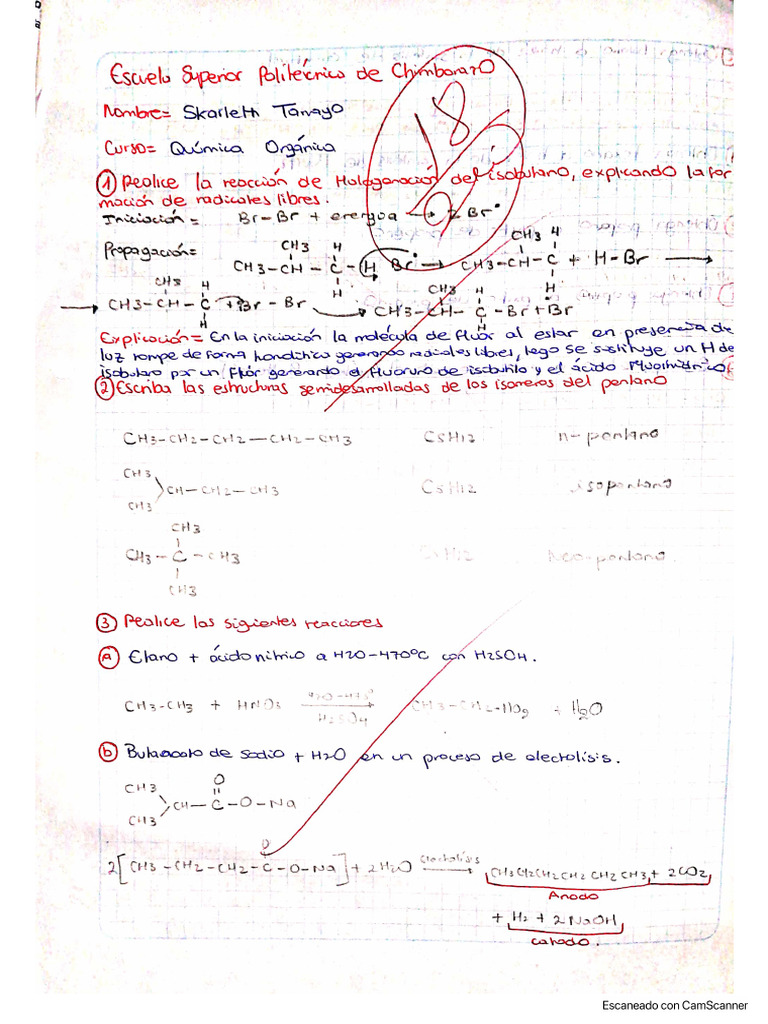 Escuela Superior Politécnica de Chimborazo
18
Nombre= Skarleth Tamayo
Curso= Química Orgánica
① Realice la reacción de Halogenación del isobutano, explicando la for
mación de radicales libres.
Iniciación= Br-Br + energia → 2 Br•
Propagación=
CH3 H
CH3-CH-C-H Br• →
H
CH3 H
CH3-CH-C + H-Br →
H
CH3 H
→ CH3-CH-C + Br-Br →
H
CH3 H
CH3-CH-C-Br+Br
H
Explicación= En la iniciación la molécula de fluór al estar en presencia de
luz rompe de forma homolítica generando radicales libres, lego se sustituye un H de
isobutano por un fluór generando el fluoruro de isobutilo y el ácido fluorhídrico
② Escriba las estructuras semidesarrolladas de los isomeros del pentano
CH3-CH2-CH2-CH2-CH3 C5H12 n-pentano
CH3
CH-CH2-CH3 C5H12 isopentano
CH3
CH3
CH3-C-CH3 C5H12 Neo-pentano
CH3
③ Realice las sigientes reacciones
ⓐ Etano + ácido nítrico a H20-470°C con H2SO4.
CH3-CH3 + HNO3 420-475° H2SO4 → CH3-CH2-NO2 + H2O
ⓑ Butanoato de sodio + H2O en un proceso de electolísis.
CH3 O
CH-C-O-Na
CH3
O
2[CH3-CH2-CH2-C-O-Na] + 2H2O electolísis → CH3CH2CH2CH2CH2CH3 + 2CO2
Anodo
+ H2 + 2NaOH
catodo.
Escaneado con CamScanner